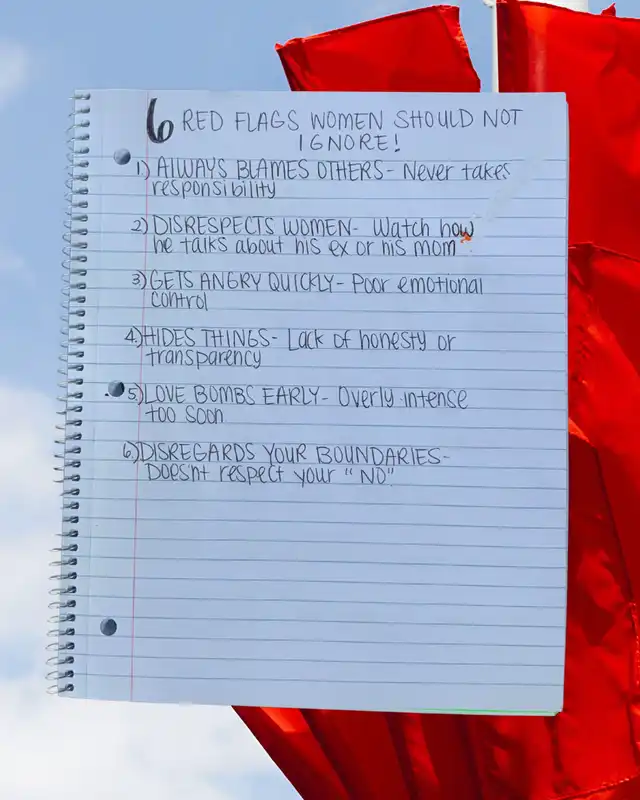 6 RED FLAGS WOMEN SHOULD NOT
IGNORE!
1) ALWAYS BLAMES OTHERS- Never takes
responsibility
2) DISRESPECTS WOMEN- Watch how
he talks about his ex or his mom
3) GETS ANGRY QUICKLY- Poor emotional
control
4) HIDES THINGS- Lack of honesty or
transparency
5) LOVE BOMBS EARLY- Overly intense
too soon
6) DISREGARDS YOUR BOUNDARIES-
Does'nt respect your "NO"